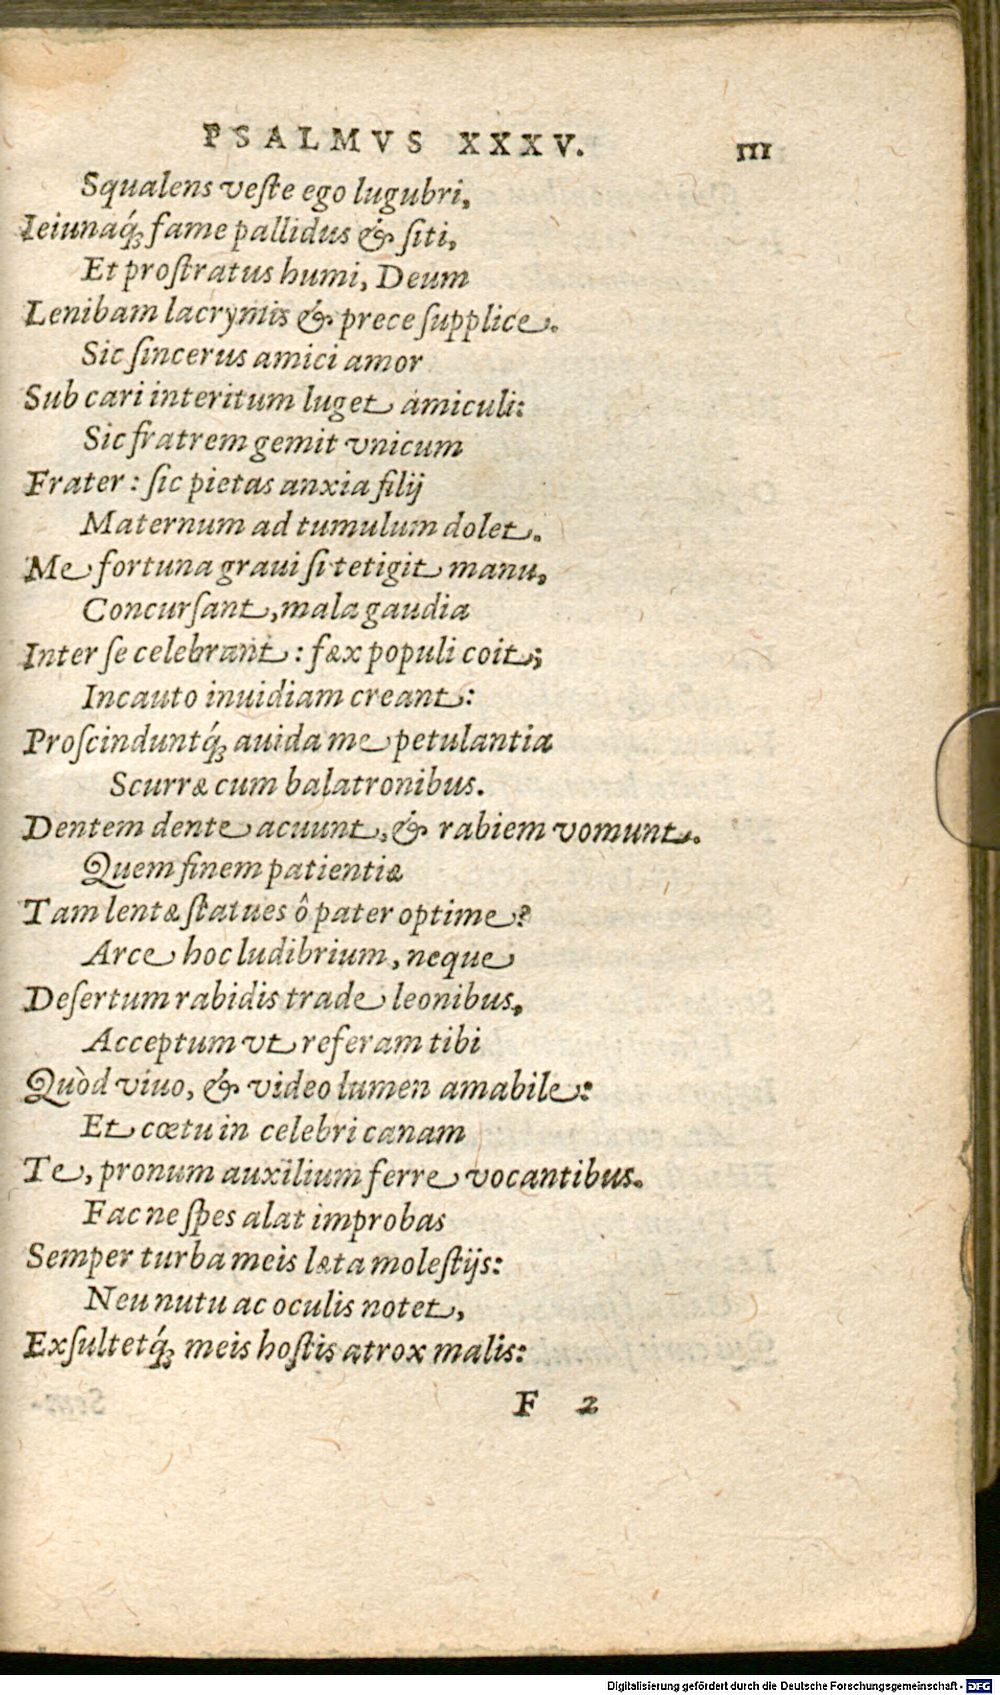 PSALMVS XXXV. III
Squalens veſte ego lugubri,
Ieiunaq́; fame pallidus & ſiti,
Et proſtratus humi, Deum
Lenibam lacrymis & prece ſupplice.
Sic ſincerus amici amor
Sub cari interitum luget amiculi:
Sic fratrem gemit vnicum
Frater: ſic pietas anxia filij
Maternum ad tumulum dolet.
Me fortuna graui ſi tetigit manu,
Concurſant, mala gaudia
Inter ſe celebrant: fæx populi coit;
Incauto inuidiam creant:
Proſcinduntq́; auida me petulantia
Scurræ cum balatronibus.
Dentem dente acuunt, & rabiem vomunt.
Quem finem patientiæ
Tam lentæ ſtatues ô pater optime?
Arce hoc ludibrium, neque
Deſertum rabidis trade leonibus,
Acceptum vt referam tibi
Quòd viuo, & video lumen amabile:
Et cœtu in celebri canam
Te, pronum auxilium ferre vocantibus.
Fac ne ſpes alat improbas
Semper turba meis læta moleſtijs:
Neu nutu ac oculis notet,
Exſultetq́; meis hoſtis atrox malis:
F 2
Digitalisierung gefördert durch die Deutsche Forschungsgemeinschaft - DFG